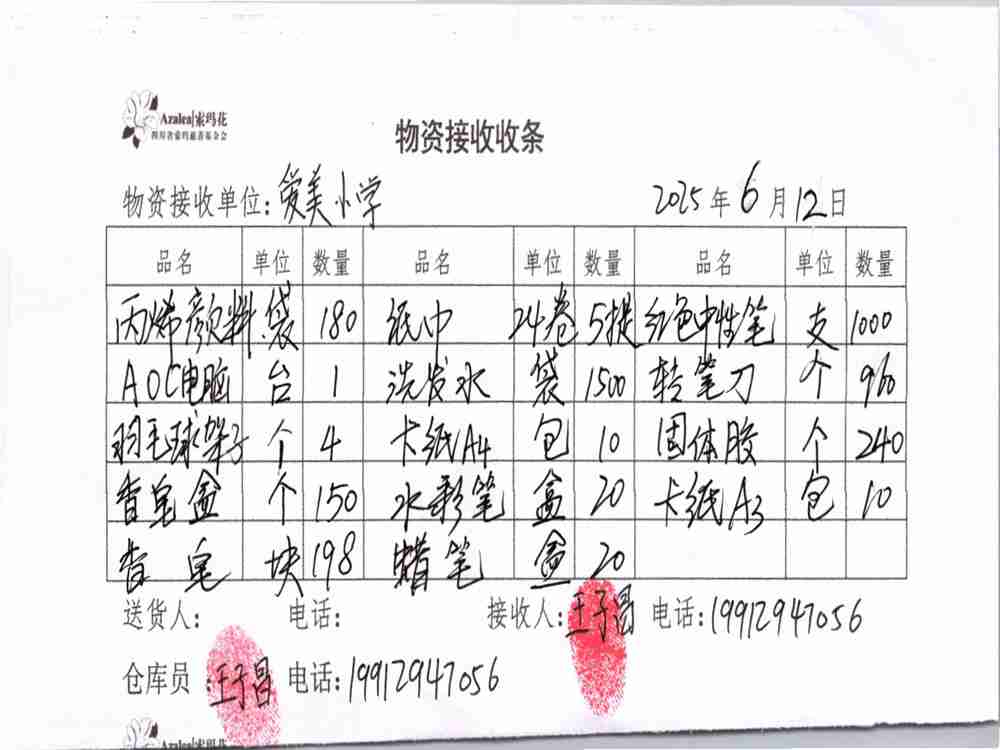 Azalea|索玛花
四川省索玛慈善基金会
物资接收收条
物资接收单位:爱美小学 2025年6月12日
品名 单位 数量 品名 单位 数量 品名 单位 数量
丙烯颜料 袋 180 纸巾 24卷 5提 红色中性笔 支 1000
AOC电脑 台 1 洗发水 袋 1500 转笔刀 个 960
羽毛球架子 个 4 卡纸A4 包 10 固体胶 个 240
香皂盒 个 150 水彩笔 盒 20 卡纸A3 包 10
香皂 块 198 蜡笔 盒 20
送货人: 电话: 接收人:王子昌 电话:19912947056
仓库员:王子昌 电话:19912947056
Azalea|索玛花